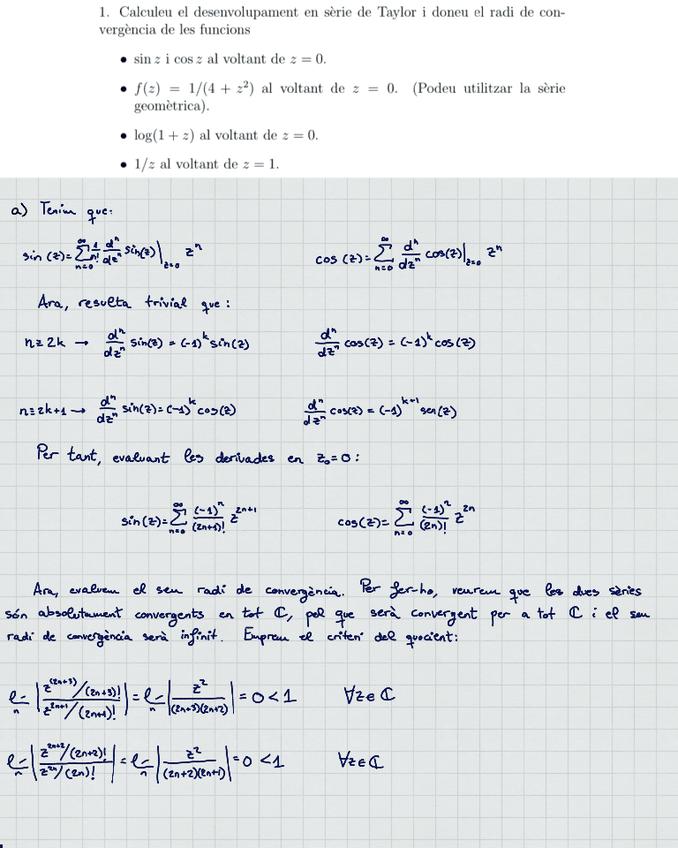 1. Calculeu el desenvolupament en sèrie de Taylor i doneu el radi de con-
vergència de les funcions
• sin z i cos z al voltant de z = 0.
• f(z) = 1/(4 + z²) al voltant de z = 0. (Podeu utilitzar la sèrie
geomètrica).
• log(1 + z) al voltant de z = 0.
• 1/z al voltant de z = 1.
a) Tenim que:
sin (z) = ∑_{n=0}^{∞} 1/n! dⁿ/dzⁿ sin(z)|_{z=0} zⁿ cos (z) = ∑_{n=0}^{∞} dⁿ/dzⁿ cos(z)|_{z=0} zⁿ
Ara, resulta trivial que:
n = 2k → dⁿ/dzⁿ sin(z) = (-1)^k sin(z) dⁿ/dzⁿ cos(z) = (-1)^k cos(z)
n = 2k+1 → dⁿ/dzⁿ sin(z) = (-1)^k cos(z) dⁿ/dzⁿ cos(z) = (-1)^{k+1} sen(z)
Per tant, evaluant les derivades en z₀ = 0:
sin(z) = ∑_{n=0}^{∞} (-1)ⁿ/(2n+1)! z^{2n+1} cos(z) = ∑_{n=0}^{∞} (-1)ⁿ/(2n)! z^{2n}
Ara, evaluem el seu radi de convergència. Per fer-ho, veurem que les dues sèries
són absolutament convergents en tot ℂ, pel que serà convergent per a tot ℂ i el seu
radi de convergència serà infinit. Emprem el criteri del quocient:
lim_n |z^{(2n+3)}/(2n+3)! / z^{2n+1}/(2n+1)!| = lim_n |z²/(2n+3)(2n+2)| = 0 < 1 ∀z∈ℂ
lim_n |z^{2n+2}/(2n+2)! / z^{2n}/(2n)!| = lim_n |z²/(2n+2)(2n+1)| = 0 < 1 ∀z∈ℂ